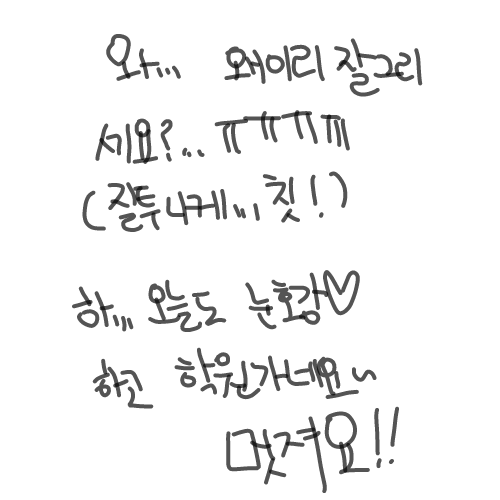 와,,, 왜이리 잘그리
세요?... ㅠㅠㅠㅠ
(질투나게,,, 칫!)
하,,, 오늘도 눈호강♡
하고 학원가네요~
멋져요!!